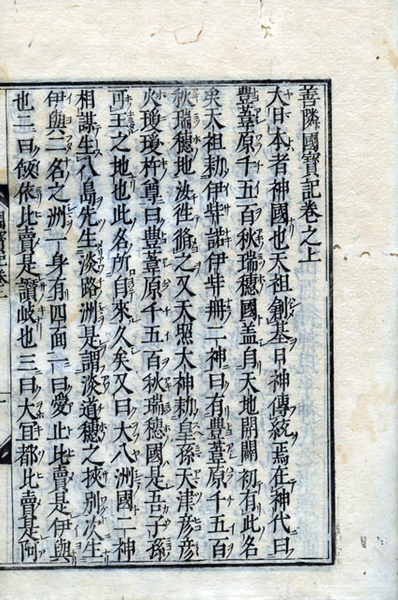 善隣國寶記卷之上
大日本者神國也天祖創基日神傳統焉在神代曰
豐葦原千五百秋瑞穗國盖自天地開闢初有此名
矣天祖勅伊弉諾伊弉冊二神曰有豐葦原千五百
秋瑞穗地汝徃脩之又天照太神勅皇孫天津彦彦
火瓊瓊杵尊曰豐葦原千五百秋瑞穗國是吾子孫
可王之地也此名所自來久矣又曰大八洲國二神
相謀生八島先生淡路洲是謂淡道穗之狹別次生
伊與二名之洲一身有四面一曰愛止比賣是伊與
也二曰飯依比賣是讃岐也三曰大宜都比賣是阿